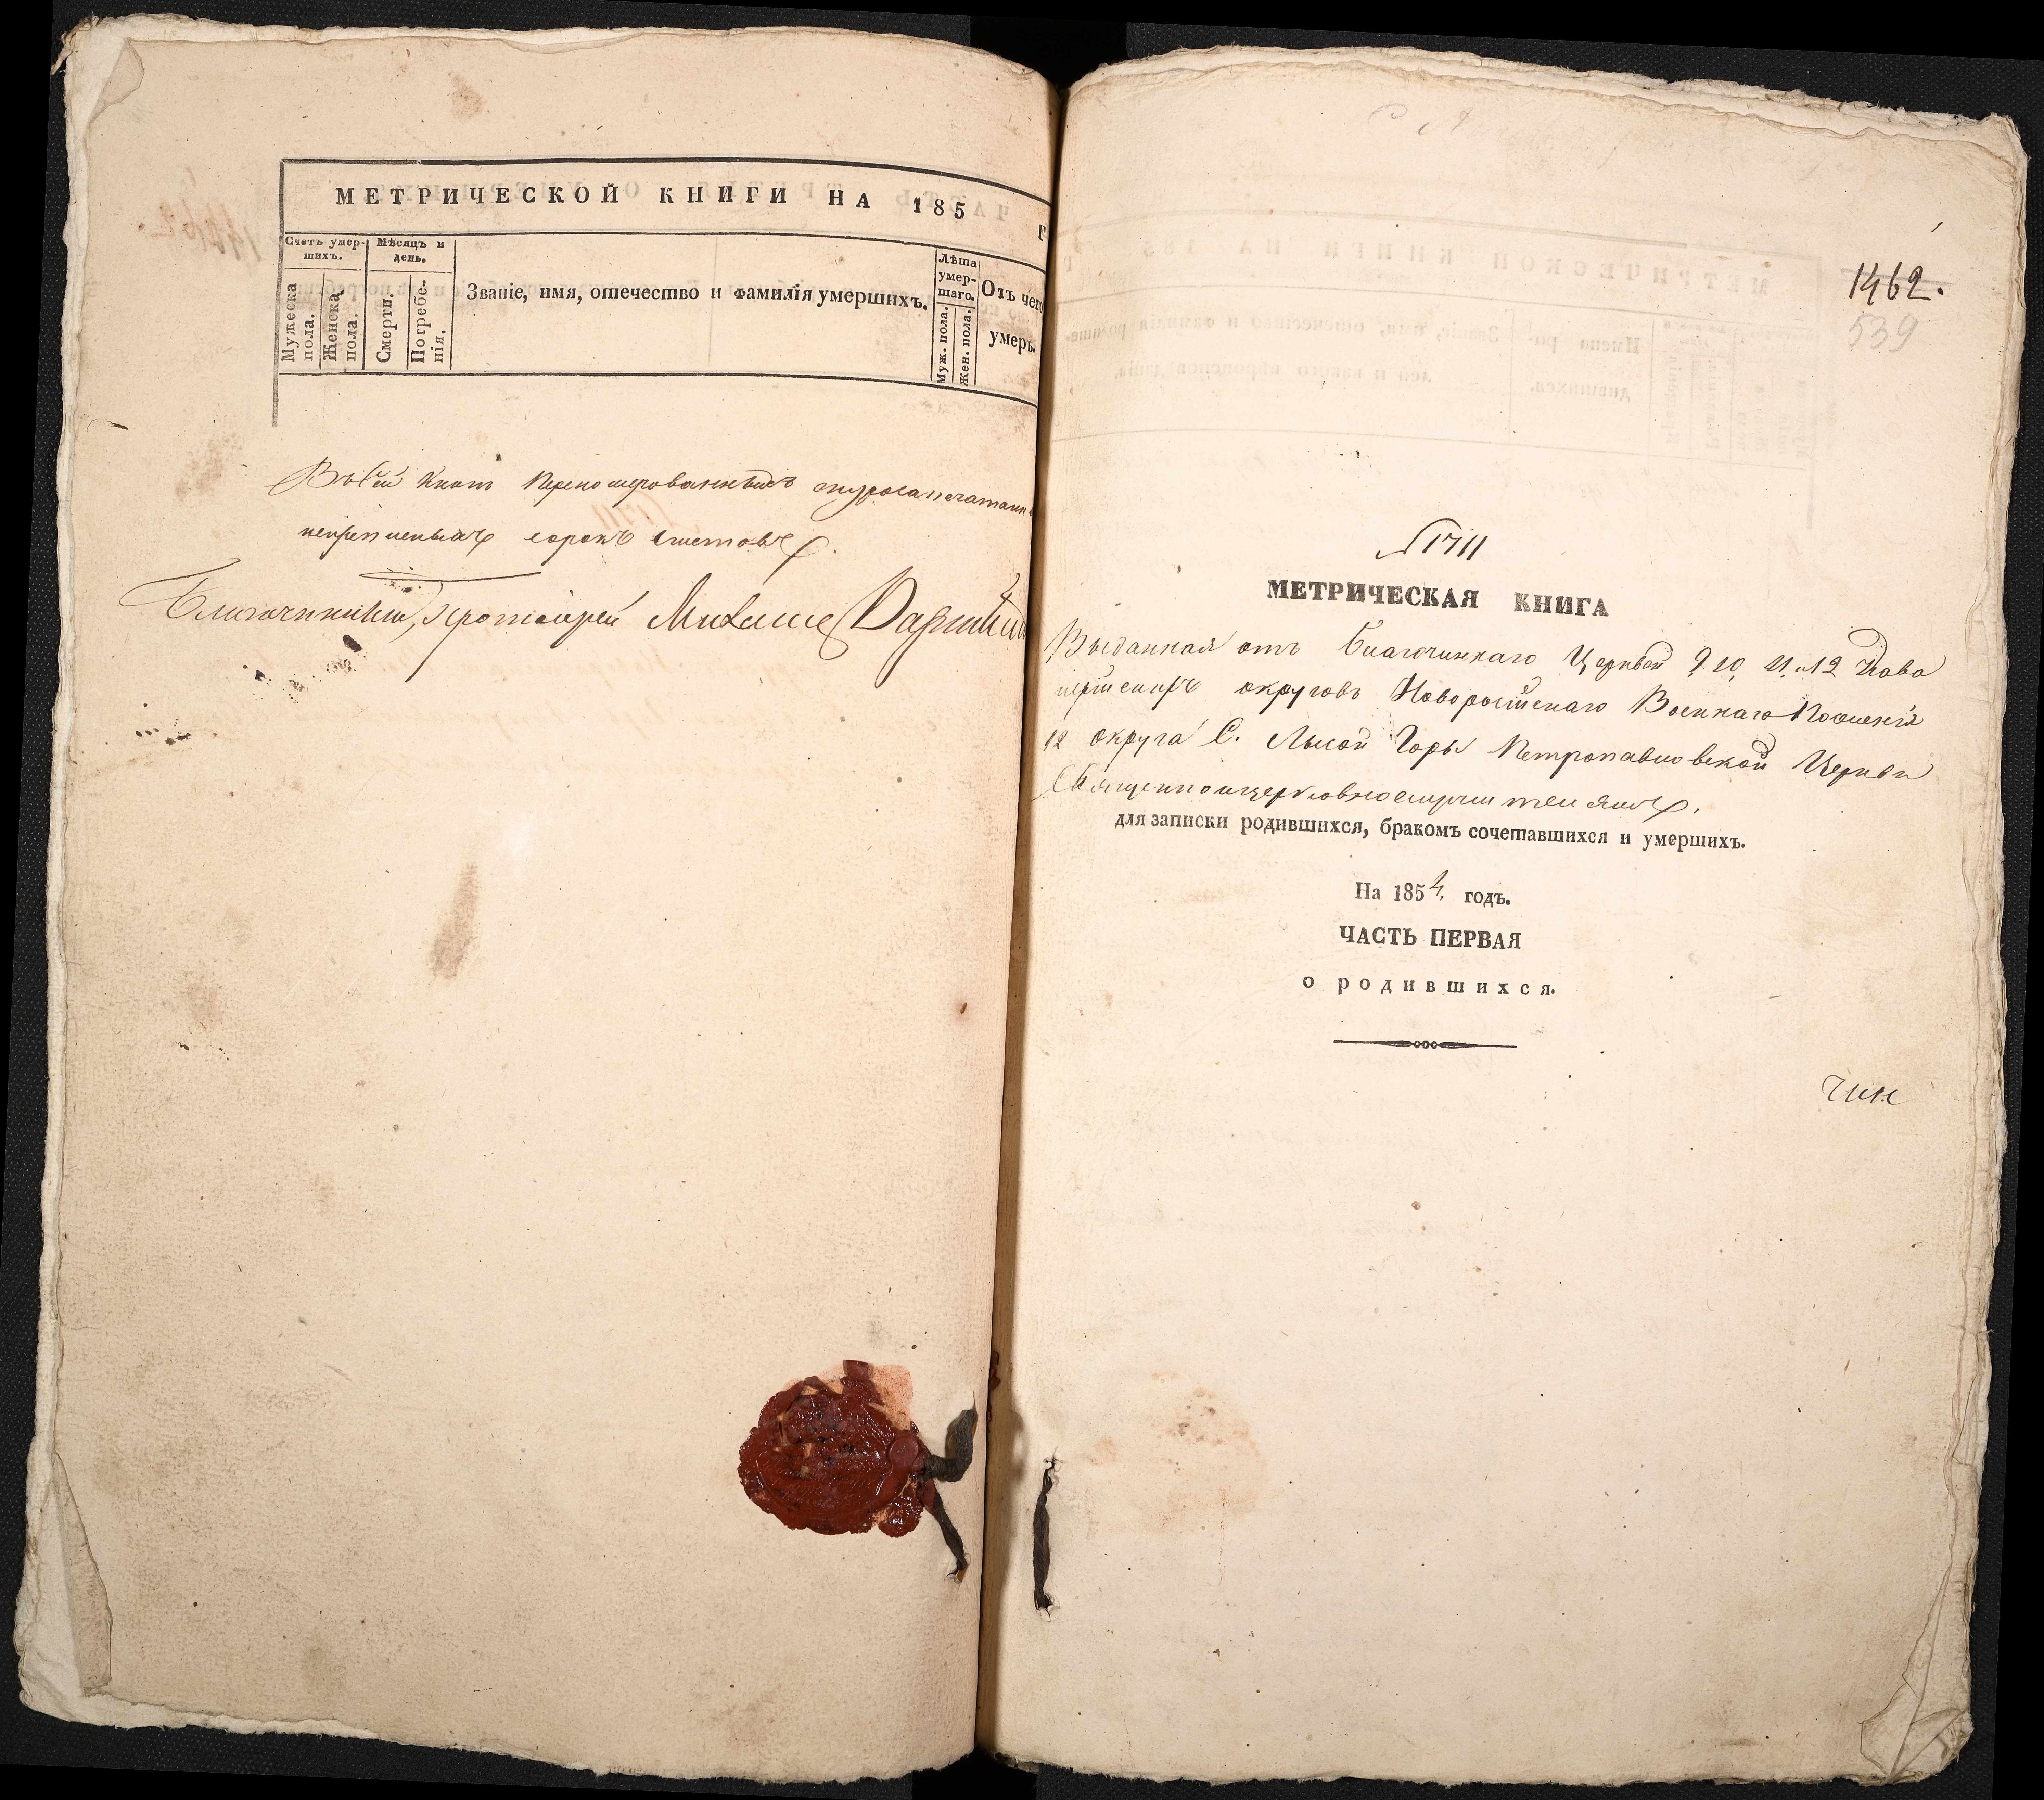 МЕТРИЧЕСКОЙ КНИГИ НА 185 г
Счетъ умер-
шихъ.
Мужеска
пола.
Женска
пола.
Мѣсяцъ и
день.
Смерти.
Погребе-
нія.
Званіе, имя, отечество и фамилія умершихъ.
Лѣта
умер-
шаго.
Муж. пола.
Жен. пола.
Отъ чего
умеръ.
Въ сей книги перенумерованныхъ
сорокъ листовъ.
Благочинный, протоіерей Михаилъ
1462.
539
№ 1711
МЕТРИЧЕСКАЯ КНИГА
Выданная отъ Благочиннаго Церквей 9, 10, 11 и 12 Кава
лерійскихъ округовъ Новороссійскаго Военнаго Поселенія
12 округа С. Лысой Горы Петропавловской Церкви
Священноицерковнослужителямъ.
для записки родившихся, бракомъ сочетавшихся и умершихъ.
На 1854 годъ.
ЧАСТЬ ПЕРВАЯ
о родившихся.